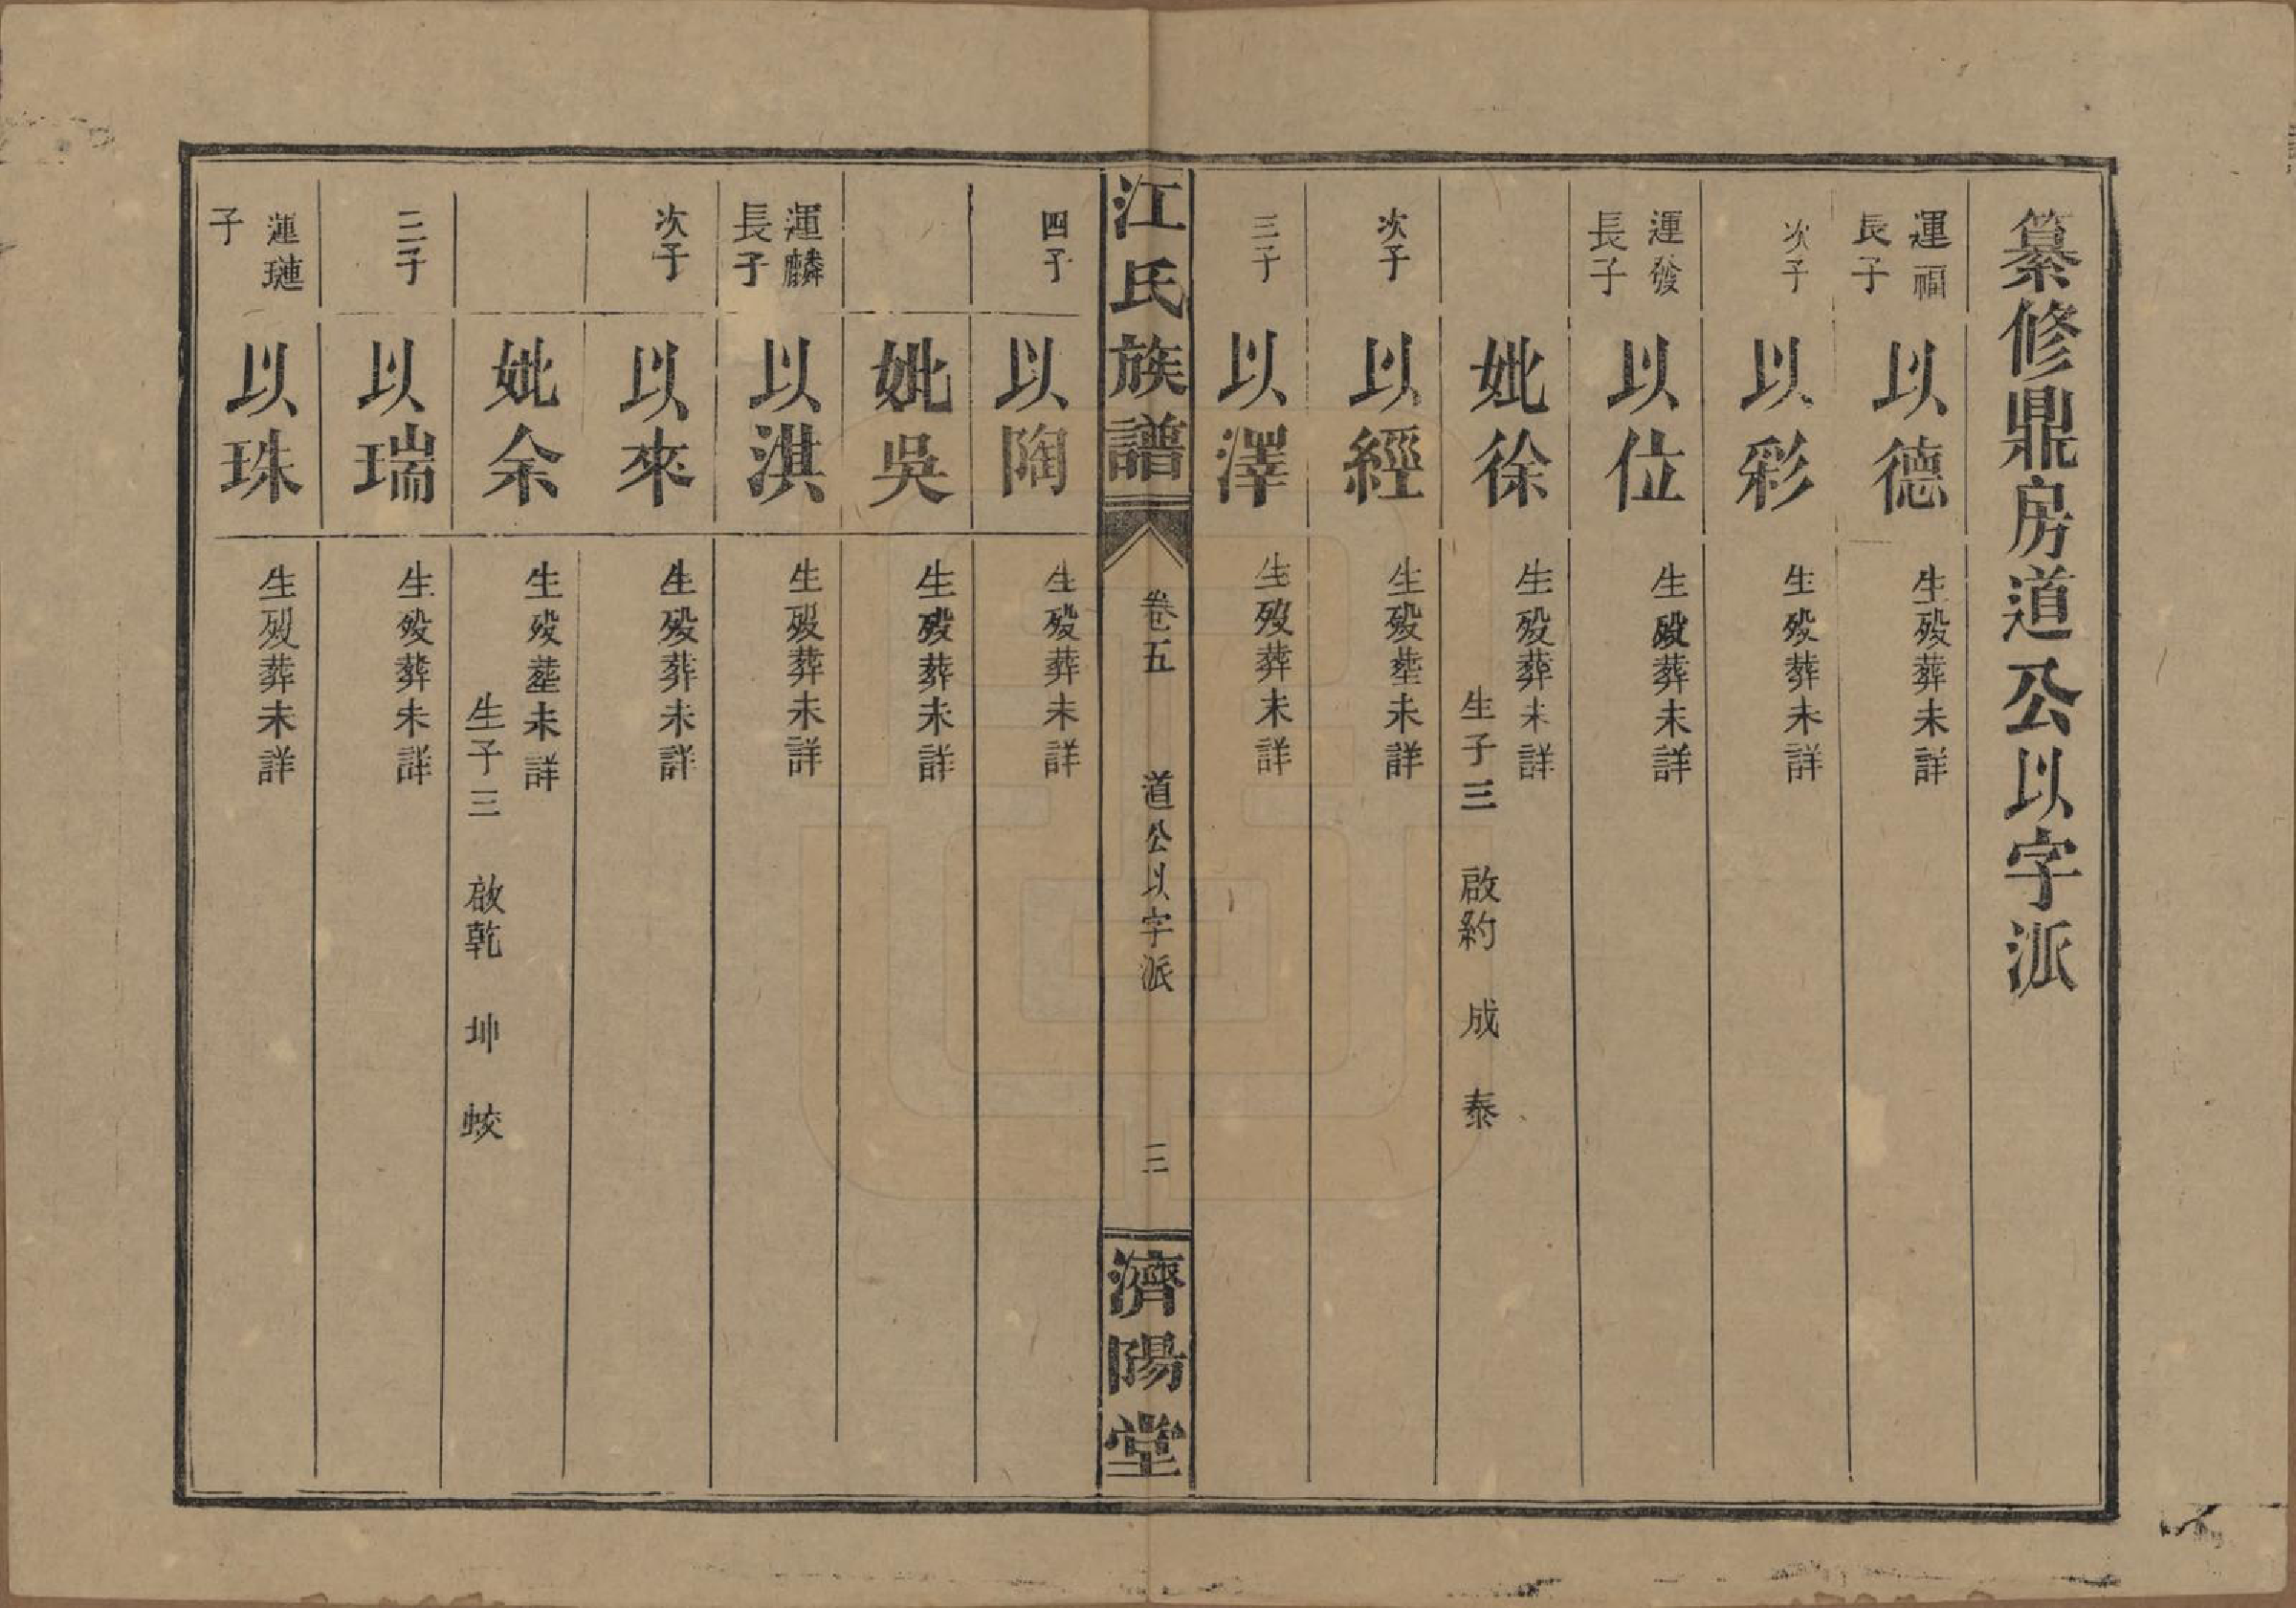 纂修鼎房道公以字派
運福
長子
以德
生殁葬未詳
次子
以彩
生殁葬未詳
運發
長子
以位
生殁葬未詳
妣徐
生殁葬未詳
生子三 啟約 成 泰
次子
以經
生殁塟未詳
三子
以澤
生殁葬未詳
江氏族譜
卷五 道公以字派 三
濟陽堂
四子
以陶
生殁葬未詳
妣吳
生殁葬未詳
運麟
長子
以淇
生殁葬未詳
次子
以來
生殁葬未詳
妣余
生殁塟未詳
生子三 啟乾 坤 蛟
三子
以瑞
生殁葬未詳
運璉
子
以珠
生殁葬未詳